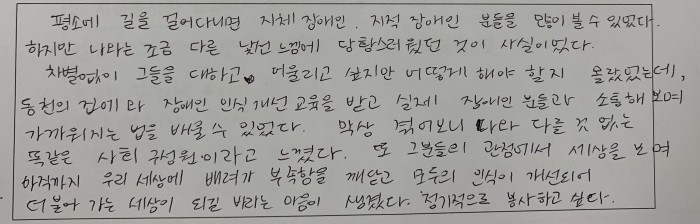 평소에 길을 걸어다니면 지체 장애인, 지적 장애인 분들을 많이 볼 수 있었다.
하지만 나와는 조금 다른 낯선 느낌에 당황스러웠던 것이 사실이었다.
차별없이 그들을 대하고, 어울리고 싶지만 어떻게 해야 할지 몰랐었는데,
동천의 집에 와 장애인 인식개선 교육을 받고 실제 장애인 분들과 소통해 보며
가까워지는 법을 배울 수 있었다. 막상 겪어보니 나와 다를 것 없는
똑같은 사회 구성원이라고 느꼈다. 또 그분들의 관점에서 세상을 보며
아직까지 우리 세상에 배려가 부족함을 깨닫고 모두의 인식이 개선되어
더불어 가는 세상이 되길 바라는 마음이 생겼다. 정기적으로 봉사하고 싶다.